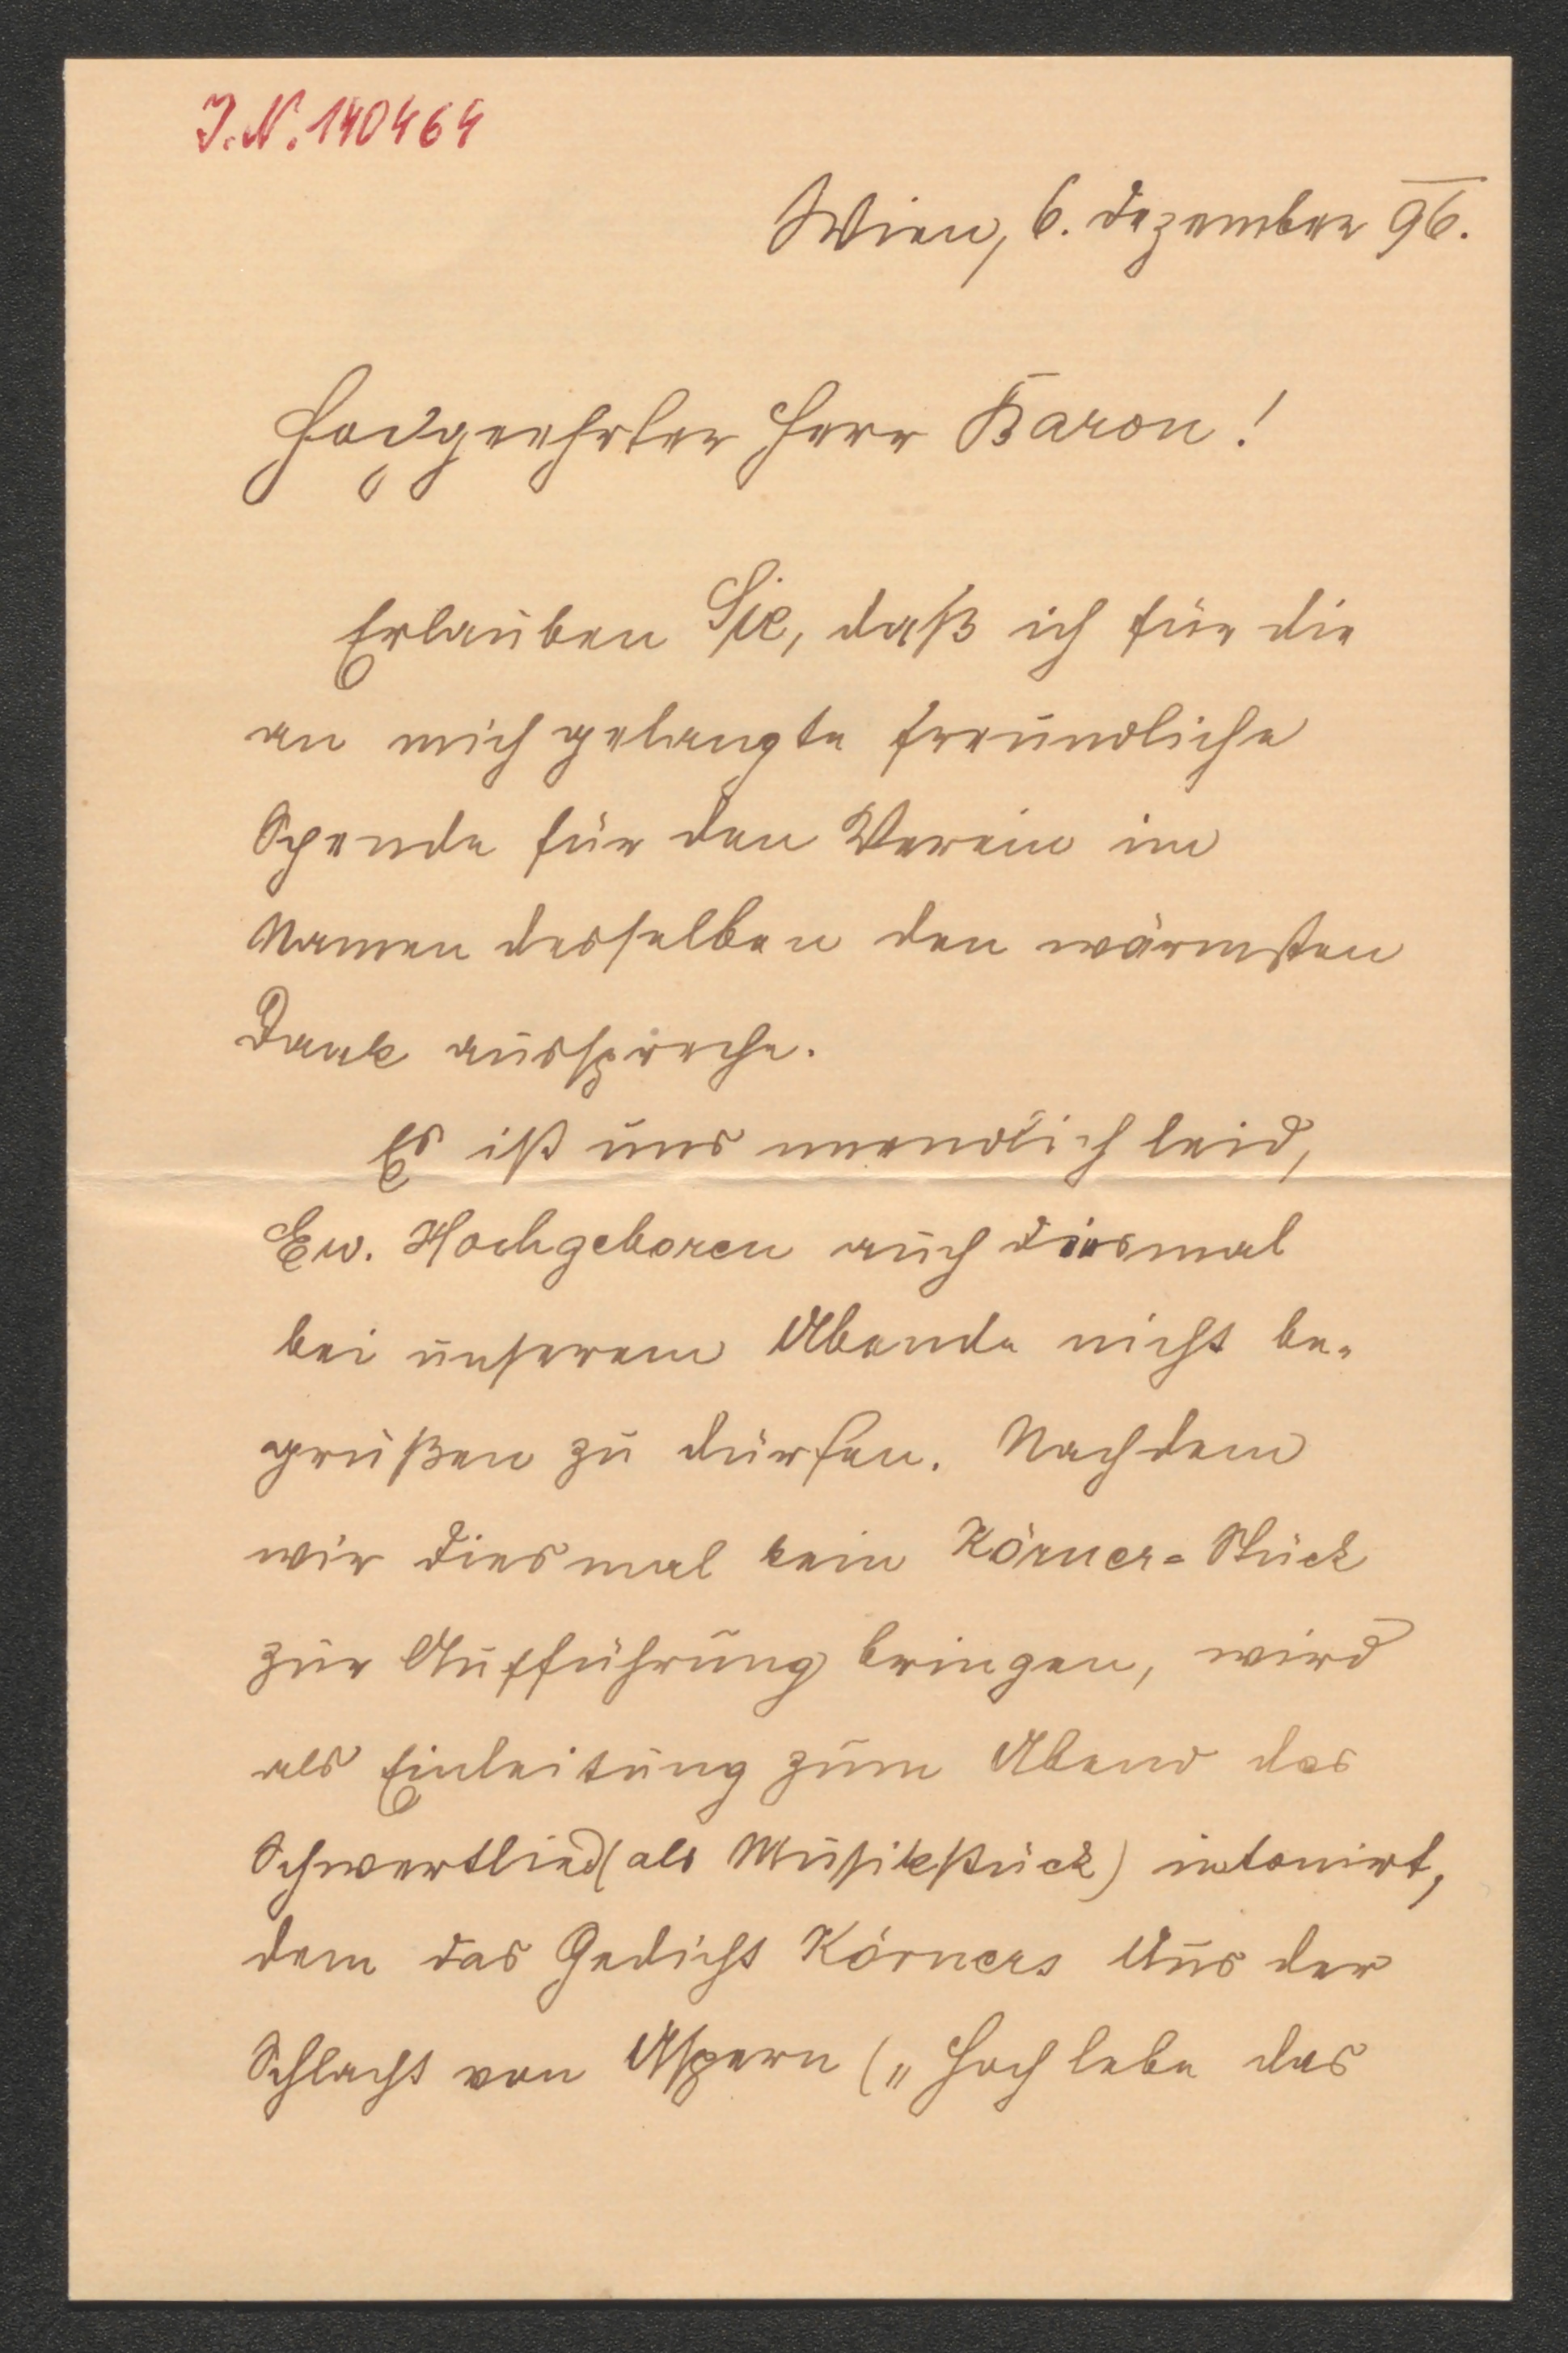 J.N. 140464
Wien, 6. Dezember 96.
Hochgeehrter Herr Baron!
Erlauben Sie, daß ich für die
an mich gelangte freundliche
Spende für den Verein im
Namen desselben den wärmsten
Dank ausspreche.
Es ist uns unendlich leid,
Ew. Hochgeboren auch diesmal
bei unserem Abende nicht be-
grüßen zu dürfen. Nachdem
wir diesmal kein Körner-Stück
zur Aufführung bringen, wird
als Einleitung zum Abend das
Schwertlied (als Musikstück) intonirt,
dem das Gedicht Körners Aus der
Schlacht von Aspern („Hoch lebe das